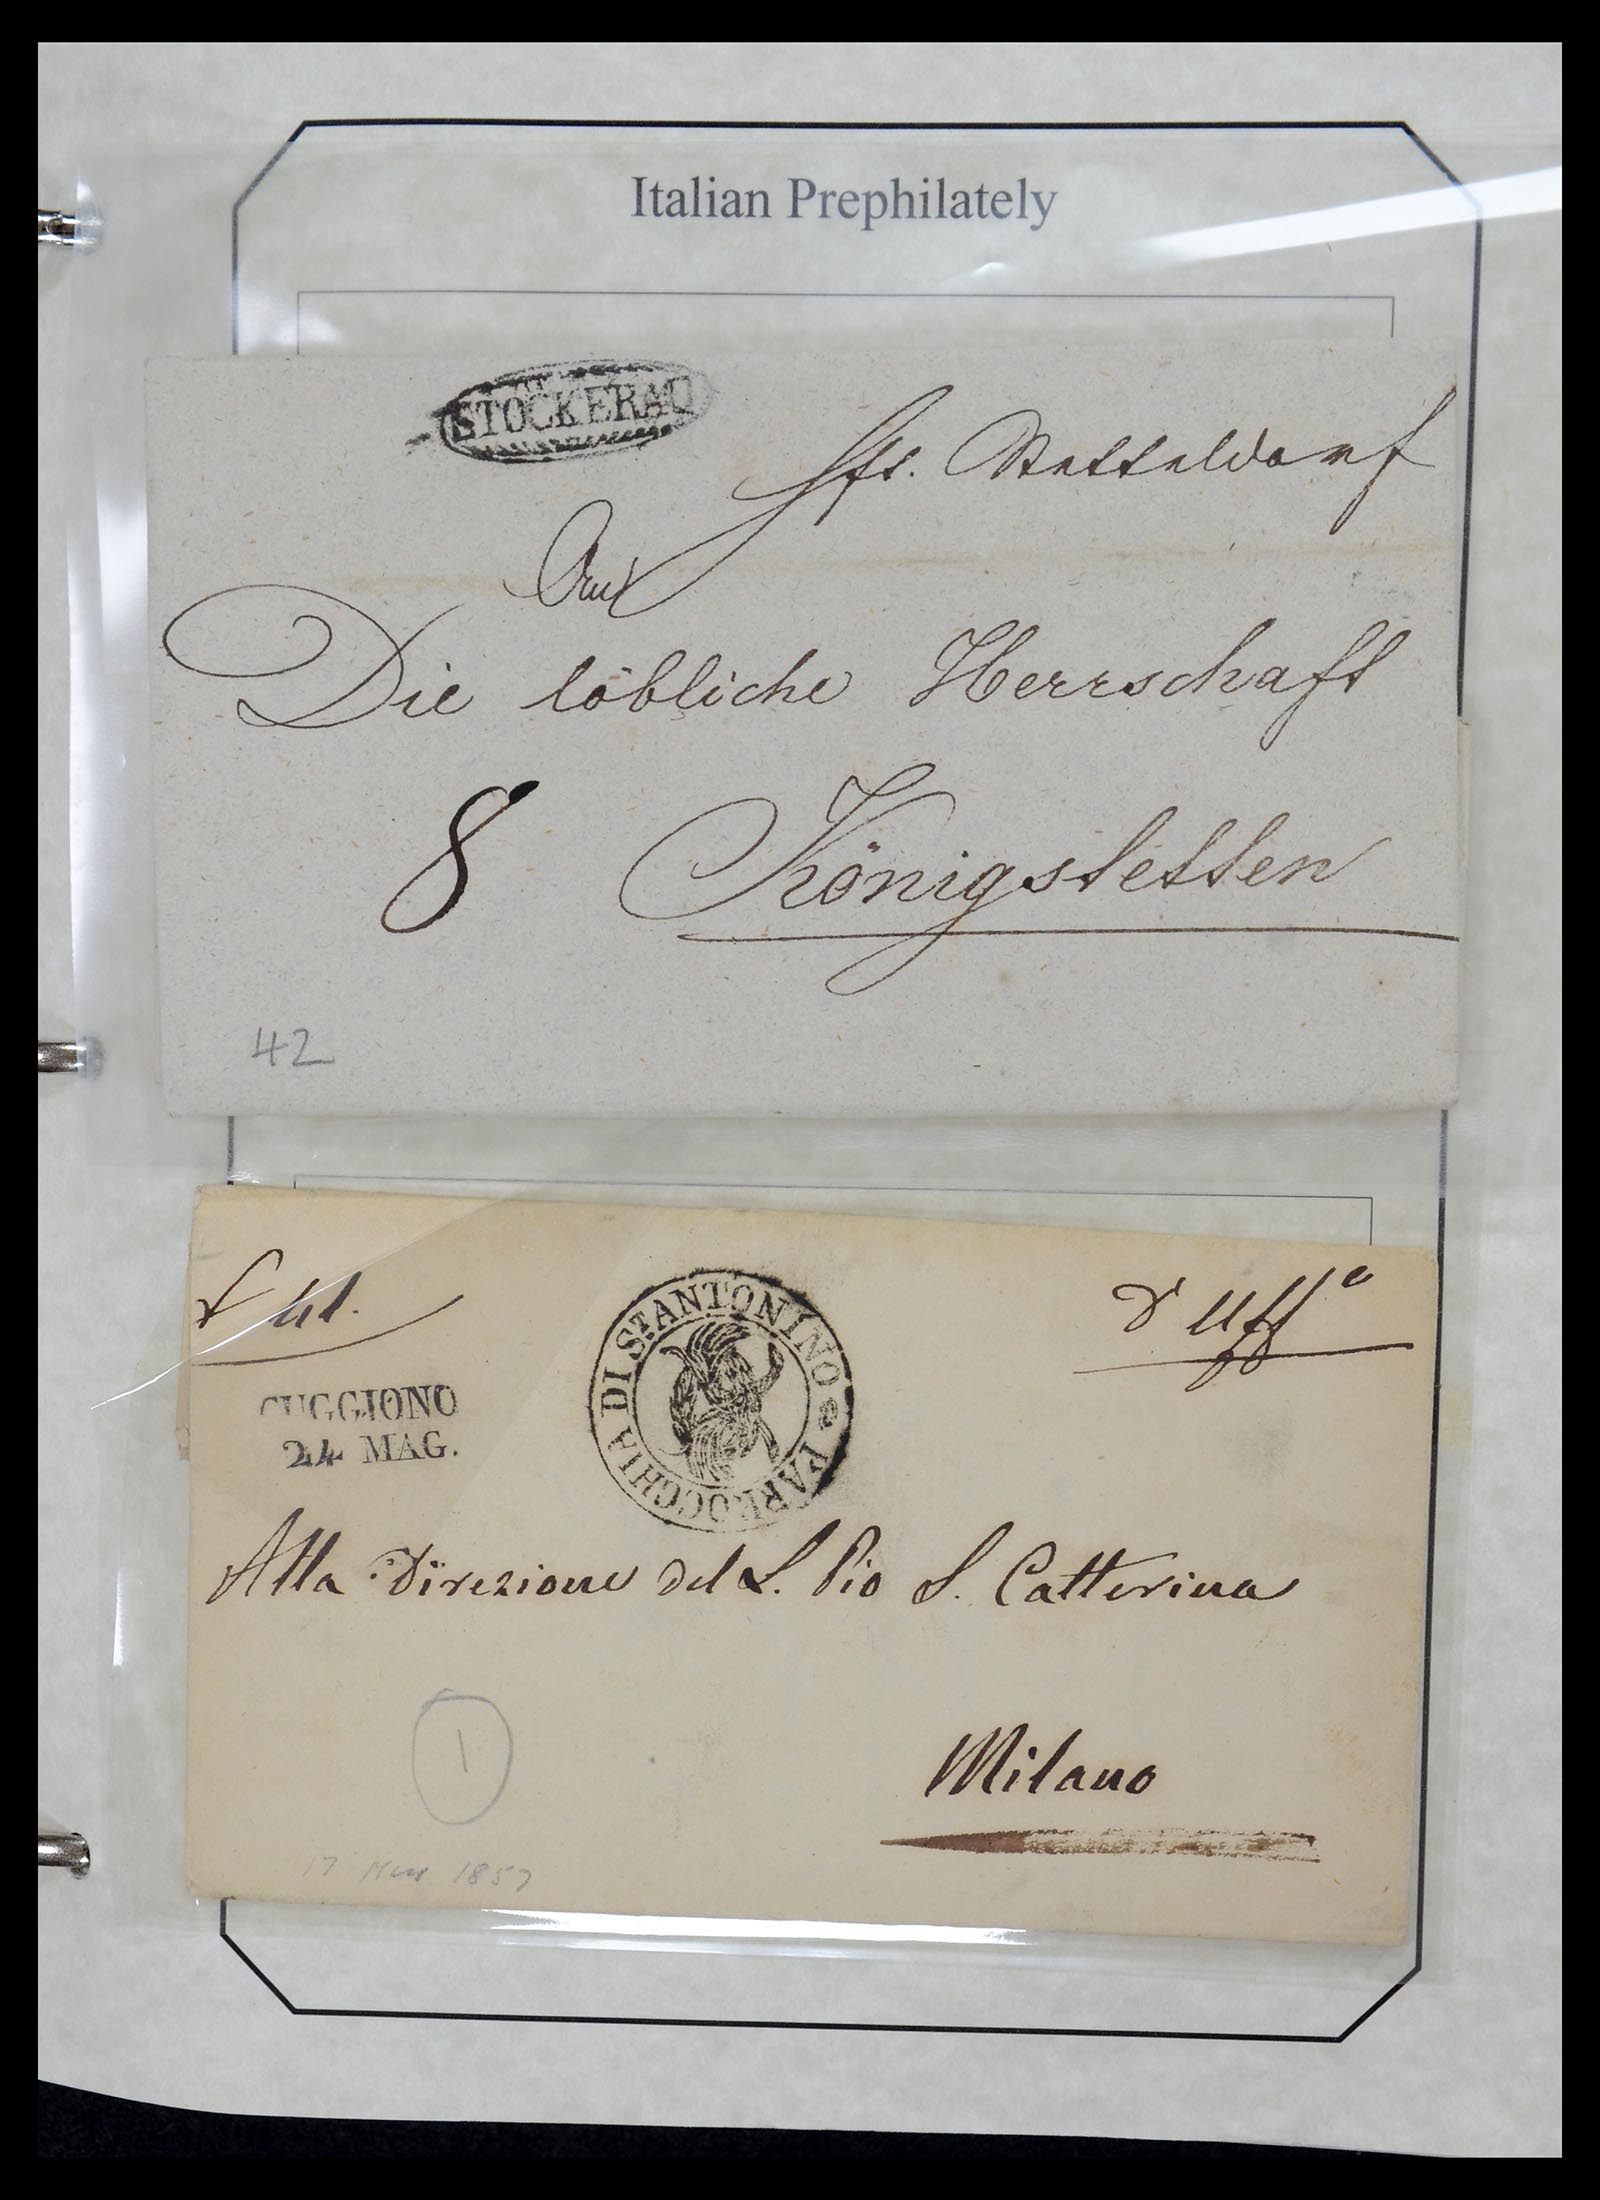 Italian Prephilately
STOCKERAU
An
Die löbliche Herrschaft
8 Königstetten
42
d'Uff.o
PARROCCHIA DI S.T ANTONINO
CUGGIONO
24 MAG.
Alla Direzione del L. Pio S. Catterina
1
Milano
17 1857